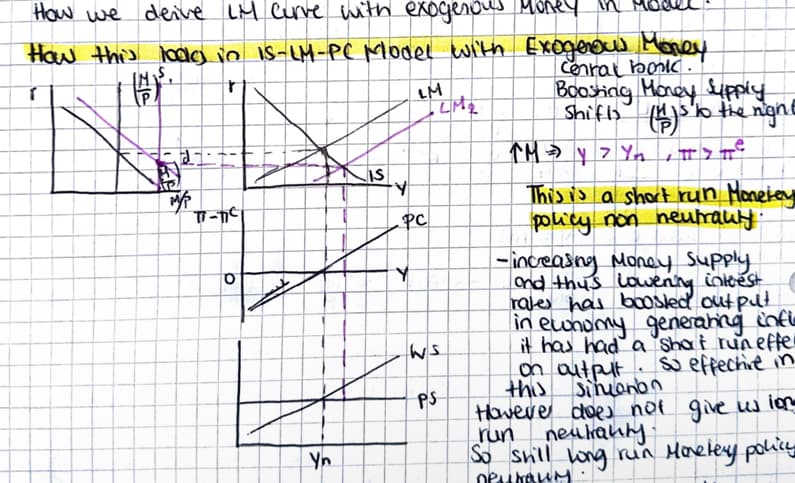 How we deive LM Curve with exogenous Money in Model.
How this looks in IS-LM-PC Model with Exogenous Money
Central bank.
Boosting Money Supply
Shifts (M/P)S to the right
↑M ⇒ Y > Yn , π > πe
This is a short run Monetary
policy non neutrality.
- increasing Money Supply
and thus lowering interest
rates has boosted output
in economy generating infl
it has had a short run effe
on output. So effective in
this situation
However does not give us lon
run neutrality.
So still long run Monetary policy
neutrality.
r
(M/P)S,
d
M/P
r
LM
LM2
IS
Y
π-πe
PC
0
Y
WS
PS
Yn